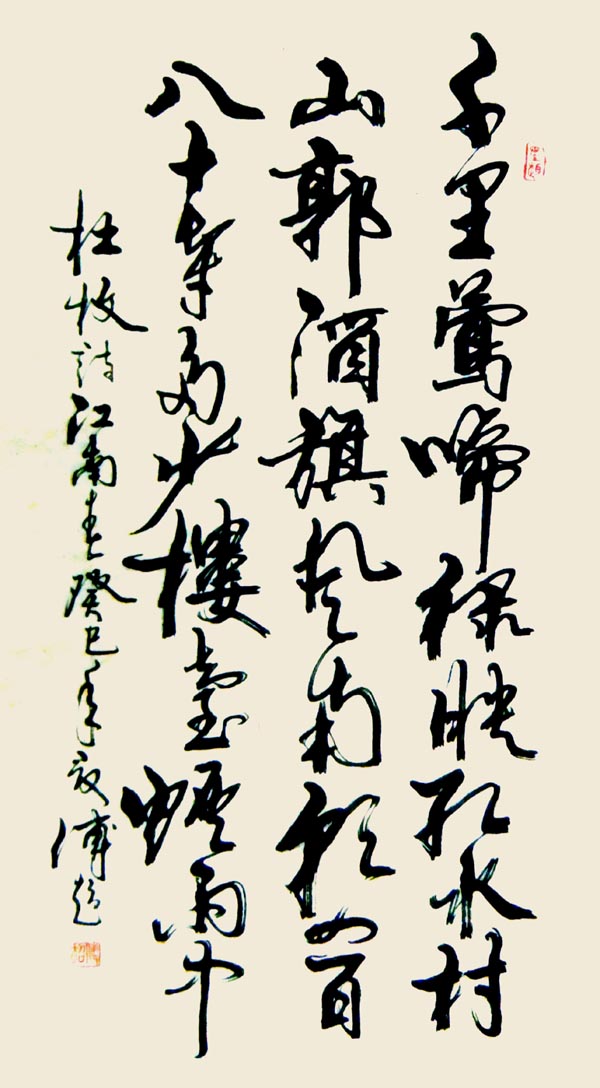 千里鶯啼綠映紅水村
山郭酒旗風南朝四百
八十寺多少樓臺煙雨中
杜牧詩江南春癸巳年夏傅超